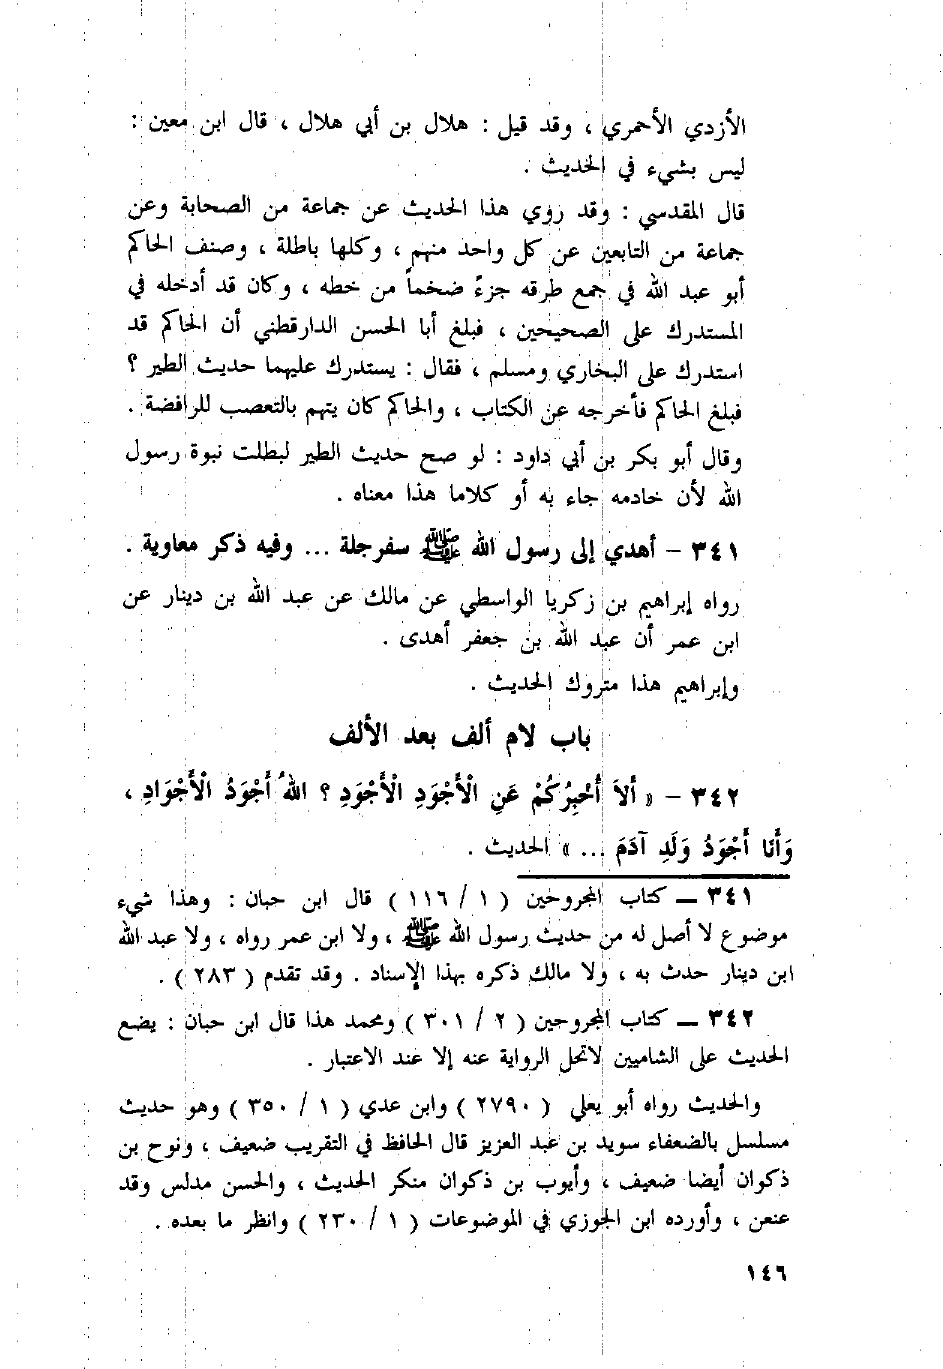 الأزدي الأحمري ، وقد قيل : هلال بن أبي هلال ، قال ابن معين :
ليس بشيء في الحديث .
قال المقدسي : وقد روي هذا الحديث عن جماعة من الصحابة وعن
جماعة من التابعين عن كل واحد منهم ، وكلها باطلة ، وصنف الحاكم
أبو عبد الله في جمع طرقه جزءً ضخماً من خطه ، وكان قد أدخله في
المستدرك على الصحيحين ، فبلغ أبا الحسن الدارقطني أن الحاكم قد
استدرك على البخاري ومسلم ، فقال : يستدرك عليهما حديث الطير ؟
فبلغ الحاكم فأخرجه عن الكتاب ، والحاكم كان يتهم بالتعصب للرافضة .
وقال أبو بكر بن أبي داود : لو صح حديث الطير لبطلت نبوة رسول
الله لأن خادمه جاء به أو كلاما هذا معناه .
٣٤١ – أهدي إلى رسول الله ﷺ سفرجلة ... وفيه ذكر معاوية .
رواه إبراهيم بن زكريا الواسطي عن مالك عن عبد الله بن دينار عن
ابن عمر أن عبد الله بن جعفر أهدى .
وإبراهيم هذا متروك الحديث .
باب لام ألف بعد الألف
٣٤٢ – « ألاَ أُخْبِرُكُمْ عَنِ الْأَجْوَدِ الْأَجْوَدِ ؟ اللهُ أَجْوَدُ الْأَجْوَادِ ،
وَأَنَا أَجْوَدُ وَلَدِ آدَمَ ... » الحديث .
٣٤١ — كتاب المجروحين ( ١ / ١١٦ ) قال ابن حبان : وهذا شيء
موضوع لا أصل له من حديث رسول الله ﷺ ، ولا ابن عمر رواه ، ولا عبد الله
ابن دينار حدث به ، ولا مالك ذكره بهذا الإسناد . وقد تقدم ( ٢٨٣ ) .
٣٤٢ — كتاب المجروحين ( ٢ / ٣٠١ ) ومحمد هذا قال ابن حبان : يضع
الحديث على الشاميين لاتحل الرواية عنه إلا عند الاعتبار .
والحديث رواه أبو يعلي ( ٢٧٩٠ ) وابن عدي ( ١ / ٣٥٠ ) وهو حديث
مسلسل بالضعفاء سويد بن عبد العزيز قال الحافظ في التقريب ضعيف ، ونوح بن
ذكوان أيضا ضعيف ، وأيوب بن ذكوان منكر الحديث ، والحسن مدلس وقد
عنعن ، وأورده ابن الجوزي في الموضوعات ( ١ / ٢٣٠ ) وانظر ما بعده .
١٤٦